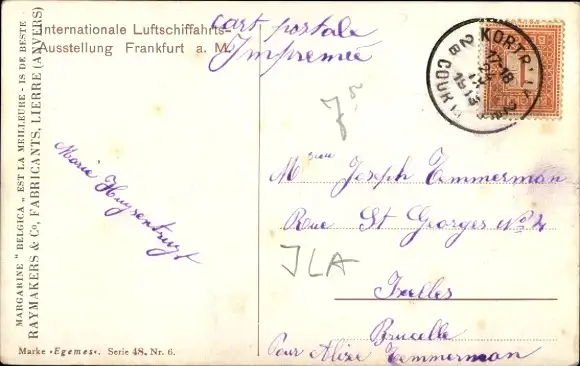 MARGARINE "BELGICA„ EST LA MEILLEURE - IS DE BESTE
RAYMAKERS & Co, FABRICANTS, LIERRE (ANVERS)
Internationale Luftschiffahrts-
Ausstellung Frankfurt a. M.
Cart postale
Impremée
KORTRIJK
17-18
IX
1913
COURTRAI
Marie Huysentruyt
Jr
Meur Joseph Temmerman
Rue St Georges No 4
JLA
Ixelles
Brucelle
Pour Alise Temmerman
Marke «Egemes». Serie 48. Nr. 6.